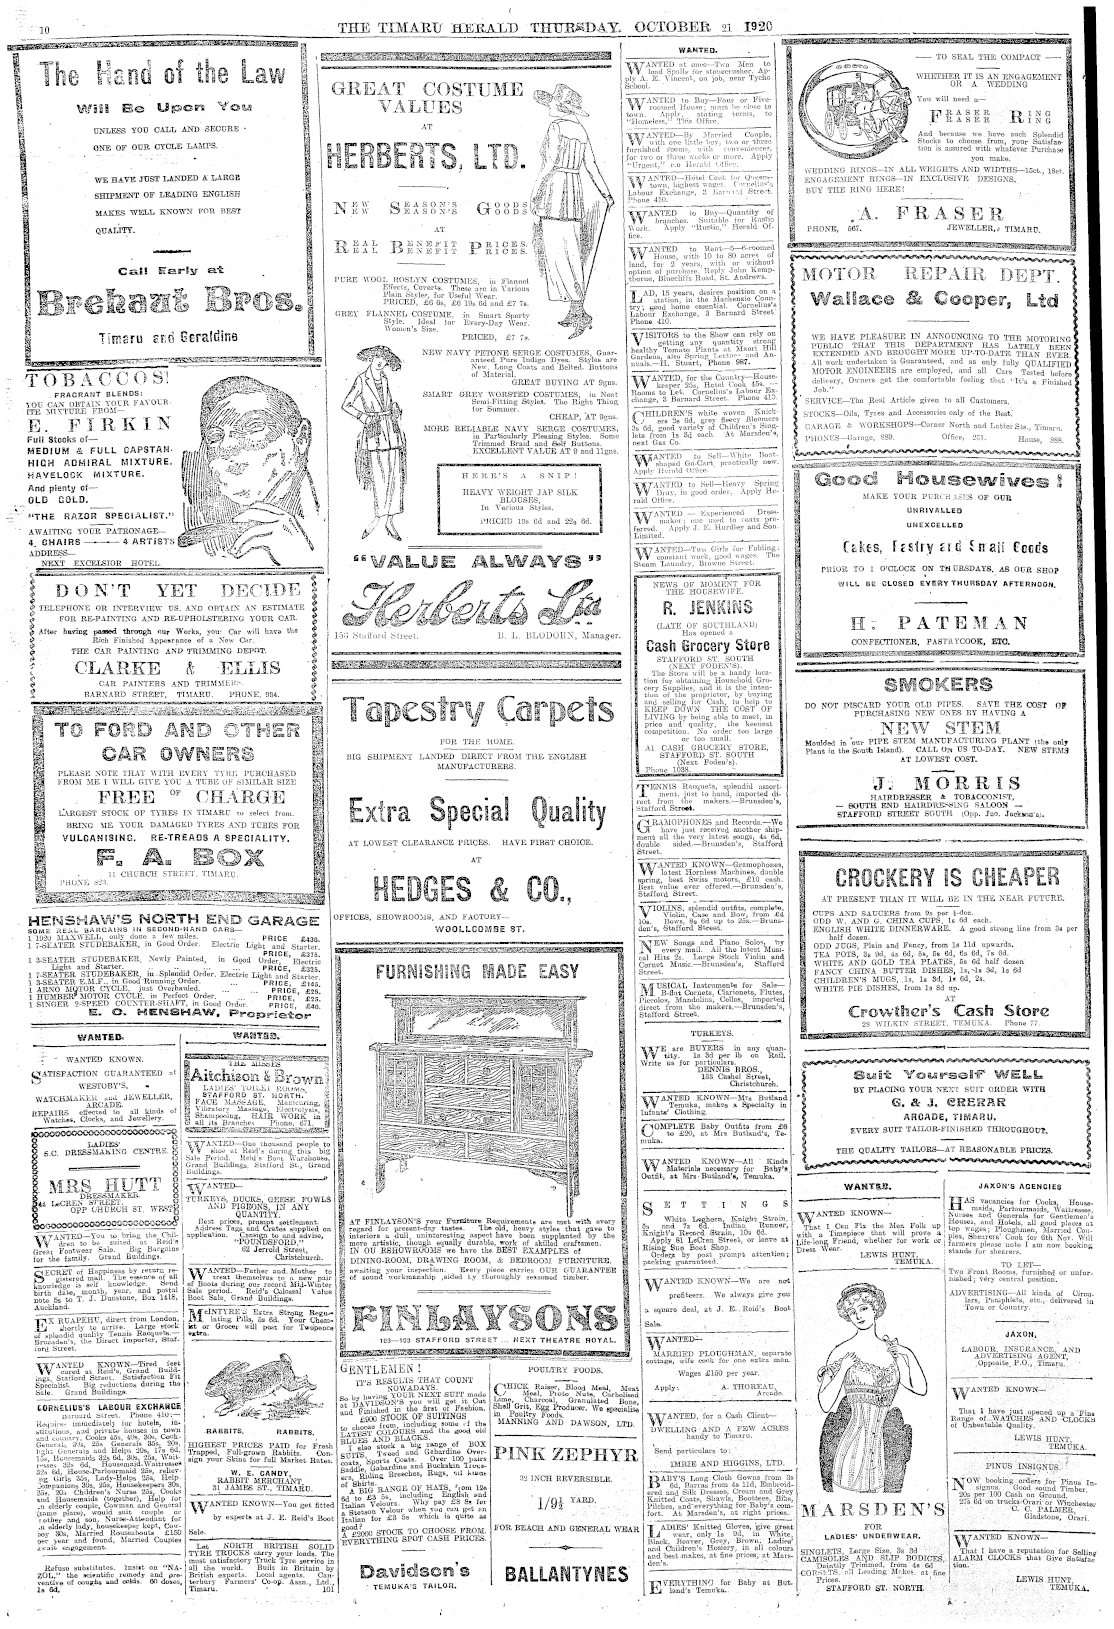 10
THE TIMARU HERALD THURSDAY, OCTOBER 21 1920
The Hand of the Law
Will Be Upon You
UNLESS YOU CALL AND SECURE
ONE OF OUR CYCLE LAMPS.
WE HAVE JUST LANDED A LARGE
SHIPMENT OF LEADING ENGLISH
MAKES WELL KNOWN FOR BEST
QUALITY.
Call Early at
Brehaut Bros.
Timaru and Geraldine
TOBACCOS!
FRAGRANT BLENDS:
YOU CAN OBTAIN YOUR FAVOUR-
ITE MIXTURE FROM—
E. FIRKIN
Full Stocks of—
MEDIUM & FULL CAPSTAN.
HIGH ADMIRAL MIXTURE.
HAVELOCK MIXTURE.
And plenty of—
OLD GOLD.
"THE RAZOR SPECIALIST."
AWAITING YOUR PATRONAGE—
4 CHAIRS — 4 ARTISTS
ADDRESS—
NEXT EXCELSIOR HOTEL
DON'T YET DECIDE
TELEPHONE OR INTERVIEW US, AND OBTAIN AN ESTIMATE
FOR RE-PAINTING AND RE-UPHOLSTERING YOUR CAR.
After having passed through our Works, your Car will have the
Rich Finished Appearance of a New Car.
THE CAR PAINTING AND TRIMMING DEPOT.
CLARKE & ELLIS
CAR PAINTERS AND TRIMMERS
BARNARD STREET, TIMARU. PHONE, 934.
TO FORD AND OTHER
CAR OWNERS
PLEASE NOTE THAT WITH EVERY TYRE PURCHASED
FROM ME I WILL GIVE YOU A TUBE OF SIMILAR SIZE
FREE OF CHARGE
LARGEST STOCK OF TYRES IN TIMARU to select from.
BRING ME YOUR DAMAGED TYRES AND TUBES FOR
VULCANISING. RE-TREADS A SPECIALITY.
F. A. BOX
11 CHURCH STREET, TIMARU.
PHONE 823.
HENSHAW'S NORTH END GARAGE
SOME REAL BARGAINS IN SECOND-HAND CARS—
1 1920 MAXWELL, only done a few miles. PRICE £430.
1 7-SEATER STUDEBAKER, in Good Order. Electric Light and Starter.
PRICE, £375.
1 3-SEATER STUDEBAKER, Newly Painted, in Good Order, Electric
Light and Starter. PRICE, £325.
1 7-SEATER STUDEBAKER, in Splendid Order. Electric Light and Starter.
1 3-SEATER E.M.F., in Good Running Order. PRICE, £145.
1 ARNO MOTOR CYCLE, just Overhauled. PRICE, £25.
1 HUMBER MOTOR CYCLE, in Perfect Order. PRICE, £25.
1 SINGER 2-SPEED COUNTER-SHAFT, in Good Order. PRICE, £40.
E. O. HENSHAW, Proprietor
WANTED.
WANTED KNOWN.
SATISFACTION GUARANTEED at
WESTOBY'S,
WATCHMAKER and JEWELLER,
ARCADE.
REPAIRS effected to all kinds of
Watches, Clocks, and Jewellery.
LADIES'
S.C. DRESSMAKING CENTRE.
MRS HUTT
DRESSMAKER
LeCREN STREET,
OPP CHURCH ST. WEST
WANTED—You to bring the Chil-
dren to be suited at Reid's
Great Footwear Sale. Big Bargains
for the family. Grand Buildings.
SECRET of Happiness by return re-
gistered mail. The essence of all
knowledge is self knowledge. Send
birth date, month, year, and postal
note 5s to T. J. Dunstone, Box 1418,
Auckland.
EX RUAPEHU, direct from London,
shortly to arrive. Large stock
of splendid quality Tennis Racquets.—
Brunsden's, the Direct Importer, Staf-
ford Street.
WANTED KNOWN—Tired feet
cured at Reid's, Grand Build-
ings, Stafford Street. Satisfaction Fit
Specialist. Big reductions during the
Sale. Grand Buildings.
CORNELIUS'S LABOUR EXCHANGE
Barnard Street. Phone 410—
Refuse substitutes. Insist on "NA-
ZOL," the scientific remedy and pre-
ventive of coughs and colds. 60 doses,
1s 6d.
WANTED.
THE MISSES
Aitchison & Brown
LADIES' TOILET ROOMS,
STAFFORD ST. NORTH.
FACE MASSAGE, Manicuring,
Vibratory Massage, Electrolysis,
Shampooing, HAIR WORK in
all its Branches Phone, 671.
WANTED—One thousand people to
shoe at Reid's during this big
Sale Period. Reid's Boot Warehouse,
Grand Buildings, Stafford St., Grand
Buildings.
WANTED—
TURKEYS, DUCKS, GEESE FOWLS
AND PIGEONS, IN ANY
QUANTITY.
Best prices, prompt settlement.
Address Tags and Crates supplied on
application. Consign to and advise,
"POUNDSFORD,"
62 Jerrold Street,
Christchurch.
WANTED—Father and Mother to
treat themselves to a new pair
of Boots during our record Mid-Winter
Sale period. Reid's Colossal Value
Boot Sale, Grand Buildings.
McINTYRE'S Extra Strong Regu-
lating Pills, 5s 6d. Your Chem-
ist or Grocer will post for Twopence
extra.
RABBITS. RABBITS.
HIGHEST PRICES PAID for Fresh
Trapped, Full-grown Rabbits. Con-
sign your Skins for full Market Rates.
W. E. CANDY,
RABBIT MERCHANT,
31 JAMES ST., TIMARU.
WANTED KNOWN—You get fitted
by experts at J. E. Reid's Boot
Sale.
Let NORTH BRITISH SOLID
TYRE TRUCKS carry your loads. The
most satisfactory Truck Tyre service in
all the world. Built in Britain by
British experts. Local agents, Can-
terbury Farmers' Co-op. Assn., Ltd.,
Timaru. 101
GREAT COSTUME
VALUES
AT
HERBERTS, LTD.
NEW SEASON'S GOODS
NEW SEASON'S GOODS
AT
REAL BENEFIT PRICES.
REAL BENEFIT PRICES.
PURE WOOL ROSLYN COSTUMES, in Flannel
Effects, Coverts. These are in Various
Plain Styles, for Useful Wear.
PRICED, £6 6s, £6 19s 6d and £7 7s.
GREY FLANNEL COSTUME, in Smart Sporty
Style. Ideal for Every-Day Wear.
Women's Size.
PRICED, £7 7s.
NEW NAVY PETONE SERGE COSTUMES, Guar-
anteed Pure Indigo Dyes. Styles are
New, Long Coats and Belted. Buttons
of Material.
GREAT BUYING AT 9gns.
SMART GREY WORSTED COSTUMES, in Neat
Semi-Fitting Styles. The Right Thing
for Summer.
CHEAP, AT 9gns.
MORE RELIABLE NAVY SERGE COSTUMES,
in Particularly Pleasing Styles. Some
Trimmed Braid and Self Buttons.
EXCELLENT VALUE AT 9 and 11gns.
HERE'S A SNIP!
HEAVY WEIGHT JAP SILK
BLOUSES,
In Various Styles.
PRICED 19s 6d and 22s 6d.
"VALUE ALWAYS"
Herberts Ltd
153 Stafford Street. B. L. BLODORN, Manager.
Tapestry Carpets
FOR THE HOME.
BIG SHIPMENT LANDED DIRECT FROM THE ENGLISH
MANUFACTURERS.
Extra Special Quality
AT LOWEST CLEARANCE PRICES. HAVE FIRST CHOICE.
AT
HEDGES & CO.,
OFFICES, SHOWROOMS, AND FACTORY—
WOOLLCOMBE ST.
FURNISHING MADE EASY
AT FINLAYSON'S your Furniture Requirements are met with every
regard for present-day tastes. The old, heavy styles that gave to
interiors a dull, uninteresting aspect have been supplanted by the
more artistic, though equally durable, work of skilled craftsmen.
IN OUR SHOWROOMS we have the BEST EXAMPLES of
DINING-ROOM, DRAWING ROOM, & BEDROOM FURNITURE,
awaiting your inspection. Every piece carries OUR GUARANTEE
of sound workmanship aided by thoroughly seasoned timber.
FINLAYSONS
103—103 STAFFORD STREET ... NEXT THEATRE ROYAL.
GENTLEMEN!
IT'S RESULTS THAT COUNT
NOWADAYS.
So by having YOUR NEXT SUIT made
at DAVIDSON'S you will get it Cut
and Finished in the first of Fashion.
£900 STOCK OF SUITINGS
to choose from, including some of the
LATEST COLOURS and the good old
BLUES AND BLACKS.
I also stock a big range of BOX
SUITS, Tweed and Gabardine Over-
coats, Sports Coats. Over 100 pairs
Saddle, Gabardine and Buckskin Trous-
ers, Riding Breeches, Rugs, all kinds
of Ties.
A BIG RANGE OF HATS, from 12s
6d to £3 5s, including English and
Italian Velours. Why pay £8 8s for
a Stetson Velour when you can get an
Italian for £3 5s which is quite as
good?
A £2000 STOCK TO CHOOSE FROM.
EVERYTHING SPOT CASH PRICES.
Davidson's
TEMUKA'S TAILOR.
POULTRY FOODS.
CHICK Raiser, Blood Meal, Meat
Meal, Proto Nuts, Carbolised
Lime, Charcoal, Granulated Bone,
Shell Grit, Egg Producer. We specialise
in Poultry Foods.
MANNING AND DAWSON, LTD.
PINK ZEPHYR
32 INCH REVERSIBLE.
1/9½ YARD.
FOR BEACH AND GENERAL WEAR
BALLANTYNES
WANTED.
WANTED at once—Two Men to
load Spalls for stonecrusher. Ap-
ply A. E. Vincent, on job, near Tycho
School.
WANTED to Buy—Four or Five-
roomed House; must be close to
town. Apply, stating terms, to
"Homeless," This Office.
WANTED—By Married Couple,
with one little boy, two or three
furnished rooms, with conveniences,
for two or three weeks or more. Apply
"Urgent," c.o Herald Office.
WANTED—Hotel Cook for Queens-
town, highest wages. Cornelius's
Labour Exchange, 3 Barnard Street.
Phone 410.
WANTED to Buy—Quantity of
branches. Suitable for Rustic
Work. Apply "Rustic," Herald Of-
fice.
WANTED to Rent—5—6-roomed
House, with 10 to 80 acres of
land, for 2 years, with or without
option of purchase. Reply John Kemp-
thorne, Bluecliffs Road, St. Andrews.
LAD, 15 years, desires position on a
station, in the Mackenzie Coun-
try; good home essential. Cornelius's
Labour Exchange, 3 Barnard Street.
Phone 410.
VISITORS to the Show can rely on
getting any quantity strong
healthy Tomato Plants at Maori Hill
Gardens, also Spring Lettuce and An-
nuals.—H. Stuart, Phone 967.
WANTED, for the Country—House-
keeper 25s, Hotel Cook 45s. —
Rooms to Let. Cornelius's Labour Ex-
change, 3 Barnard Street. Phone 410.
CHILDREN'S white woven Knick-
ers 2s 6d, grey fleecy Bloomers
3s 6d, good variety of Children's Sing-
lets from 1s 3d each. At Marsden's,
next Gas Co.
WANTED to Sell—White Boat-
shaped Go-Cart, practically new.
Apply Herald Office.
WANTED to Sell—Heavy Spring
Dray, in good order. Apply He-
rald Office.
WANTED — Experienced Dress-
maker; one used to coats pre-
ferred. Apply J. E. Hurdley and Son,
Limited.
WANTED—Two Girls for Folding;
constant work, good wages. The
Steam Laundry, Browne Street.
NEWS OF MOMENT FOR
THE HOUSEWIFE.
R. JENKINS
(LATE OF SOUTHLAND)
Has opened a
Cash Grocery Store
STAFFORD ST. SOUTH
(NEXT FODEN'S).
The Store will be a handy loca-
tion for obtaining Household Gro-
cery Supplies, and it is the inten-
tion of the proprietor, by buying
and selling for Cash, to help to
KEEP DOWN THE COST OF
LIVING by being able to meet, in
price and quality, the keenest
competition. No order too large
or too small.
A1 CASH GROCERY STORE,
STAFFORD ST. SOUTH
(Next Foden's).
Phone 1038.
TENNIS Racquets, splendid assort-
ment, just to hand, imported di-
rect from the makers.—Brunsden's,
Stafford Street.
GRAMOPHONES and Records.—We
have just received another ship-
ment all the very latest songs, 4s 6d,
double sided.—Brunsden's, Stafford
Street.
WANTED KNOWN—Gramophones,
latest Hornless Machines, double
spring, best Swiss motors, £10 cash.
Best value ever offered.—Brunsden's,
Stafford Street.
VIOLINS, splendid outfits, complete,
Violin, Case and Bow, from £4
10s. Bows, 8s 6d up to 25s.—Bruns-
den's, Stafford Street.
NEW Songs and Piano Solos, by
every mail. All the latest Musi-
cal Hits 2s. Large Stock Violin and
Cornet Music.—Brunsden's, Stafford
Street.
MUSICAL Instruments for Sale—
B-flat Cornets, Clarionets, Flutes,
Piccolos, Mandolins, Cellos, imported
direct from the makers.—Brunsden's,
Stafford Street.
TURKEYS.
WE are BUYERS in any quan-
tity. 1s 3d per lb on Rail.
Write us for particulars.
DENNIS BROS.,
135 Cashel Street,
Christchurch.
WANTED KNOWN—Mrs Butland
Temuka, makes a Specialty in
Infants' Clothing.
COMPLETE Baby Outfits from £6
to £20, at Mrs Butland's, Te-
muka.
WANTED KNOWN—All Kinds
Materials necessary for Baby's
Outfit, at Mrs Butland's, Temuka.
SETTINGS
White Leghorn, Knights Strain,
5s and 7s 6d. Indian Runner,
Knight's Record Strain, 10s 6d.
Apply 81 LeCren Street, or leave at
Rising Sun Boot Shop.
Orders by post prompt attention;
packing guaranteed.
WANTED KNOWN—We are not
profiteers. We always give you
a square deal, at J. E. Reid's Boot
Sale.
WANTED—
MARRIED PLOUGHMAN, separate
cottage, wife cook for one extra man.
Wages £150 per year.
Apply: A. THOREAU,
Arcade.
WANTED, for a Cash Client—
DWELLING AND A FEW ACRES
handy to Timaru.
Send particulars to:
IMRIE AND HIGGINS, LTD.
BABY'S Long Cloth Gowns from 3s
6d, Barras from 4s 11d, Embroid-
ered and Silk Dresses, Cream and Grey
Knitted Coats, Shawls, Bootees, Bibs,
Pilches, and everything for Baby's com-
fort. At Marsden's, at right prices.
LADIES' Knitted Gloves, give great
wear, only 1s 9d, in White,
Black, Beaver, Grey, Brown. Ladies'
and Children's Hosiery, in all colours
and best makes, at fine prices, at Mars-
den's.
EVERYTHING for Baby at But-
land's Temuka.
— TO SEAL THE COMPACT —
WHETHER IT IS AN ENGAGEMENT
OR A WEDDING
You will need a—
FRASER RING
FRASER RING
And because we have such Splendid
Stocks to choose from, your Satisfac-
tion is assured with whatever Purchase
you make.
WEDDING RINGS—IN ALL WEIGHTS AND WIDTHS—15ct., 18ct.
ENGAGEMENT RINGS—IN EXCLUSIVE DESIGNS.
BUY THE RING HERE!
A. FRASER
PHONE, 567. JEWELLER, TIMARU.
MOTOR REPAIR DEPT.
Wallace & Cooper, Ltd
WE HAVE PLEASURE IN ANNOUNCING TO THE MOTORING
PUBLIC THAT THIS DEPARTMENT HAS LATELY BEEN
EXTENDED AND BROUGHT MORE UP-TO-DATE THAN EVER.
All work undertaken is Guaranteed, and as only fully QUALIFIED
MOTOR ENGINEERS are employed, and all Cars Tested before
delivery, Owners get the comfortable feeling that "It's a Finished
Job."
SERVICE—The Real Article given to all Customers.
STOCKS—Oils, Tyres and Accessories only of the Best.
GARAGE & WORKSHOPS—Corner North and Latter Sts., Timaru.
PHONES—Garage, 889. Office, 251. House, 888.
Good Housewives!
MAKE YOUR PURCHASES OF OUR
UNRIVALLED
UNEXCELLED
Cakes, Pastry and Small Goods
PRIOR TO 1 O'CLOCK ON THURSDAYS, AS OUR SHOP
WILL BE CLOSED EVERY THURSDAY AFTERNOON.
H. PATEMAN
CONFECTIONER, PASTRYCOOK, ETC.
SMOKERS
DO NOT DISCARD YOUR OLD PIPES. SAVE THE COST OF
PURCHASING NEW ONES BY HAVING A
NEW STEM
Moulded in our PIPE STEM MANUFACTURING PLANT (the only
Plant in the South Island). CALL ON US TO-DAY. NEW STEMS
AT LOWEST COST.
J. MORRIS
HAIRDRESSER & TOBACCONIST,
— SOUTH END HAIRDRESSING SALOON —
STAFFORD STREET SOUTH (Opp. Jno. Jackson's).
CROCKERY IS CHEAPER
AT PRESENT THAN IT WILL BE IN THE NEAR FUTURE.
CUPS AND SAUCERS from 9s per ½-doz.
ODD W. AND G. CHINA CUPS, 1s 6d each.
ENGLISH WHITE DINNERWARE. A good strong line from 3s per
half dozen.
ODD JUGS, Plain and Fancy, from 1s 11d upwards.
TEA POTS, 3s 9d, 4s 6d, 5s, 5s 6d, 6s 6d, 7s 8d.
WHITE AND GOLD TEA PLATES, 5s 6d half dozen
FANCY CHINA BUTTER DISHES, 1s, 1s 3d, 1s 6d
CHILDREN'S MUGS, 1s, 1s 3d, 1s 6d, 2s.
WHITE PIE DISHES, from 1s 3d up.
AT
Crowther's Cash Store
28 WILKIN STREET, TEMUKA. Phone 77.
Suit Yourself WELL
BY PLACING YOUR NEXT SUIT ORDER WITH
G. & J. CRERAR
ARCADE, TIMARU.
EVERY SUIT TAILOR-FINISHED THROUGHOUT.
THE QUALITY TAILORS—AT REASONABLE PRICES.
WANTED.
WANTED KNOWN—
That I Can Fix the Men Folk up
with a Timepiece that will prove a
Life-long Friend, whether for work or
Dress Wear.
LEWIS HUNT,
TEMUKA.
MARSDEN'S
FOR
LADIES' UNDERWEAR.
SINGLETS, Large Size, 3s 3d
CAMISOLES AND SLIP BODICES,
Daintily Trimmed, from 4s 6d
CORSETS, all Leading Makes, at fine
Prices.
STAFFORD ST. NORTH.
JAXON'S AGENCIES
HAS vacancies for Cooks, House-
maids, Parlourmaids, Waitresses,
Nurses and Generals, for Gentlemen's
Houses, and Hotels, all good places at
top wages; Ploughmen, Married Cou-
ples, Shearers' Cook for 6th Nov. Will
farmers please note I am now booking
stands for shearers.
TO LET—
Two Front Rooms, furnished or unfur-
nished; very central position.
ADVERTISING—All kinds of Circu-
lars, Pamphlets, etc., delivered in
Town or Country.
JAXON,
LABOUR, INSURANCE, AND
ADVERTISING AGENT,
Opposite P.O., Timaru.
WANTED KNOWN—
That I have just opened up a Fine
Range of WATCHES AND CLOCKS
of Unbeatable Quality.
LEWIS HUNT,
TEMUKA.
PINUS INSIGNUS.
NOW booking orders for Pinus In-
signus. Good sound Timber.
20s per 100 Cash on Ground.
27s 6d on trucks Orari or Winchester
C. C. PALMER,
Gladstone, Orari.
WANTED KNOWN—
That I have a reputation for Selling
ALARM CLOCKS that Give Satisfac-
tion.
LEWIS HUNT,
TEMUKA.